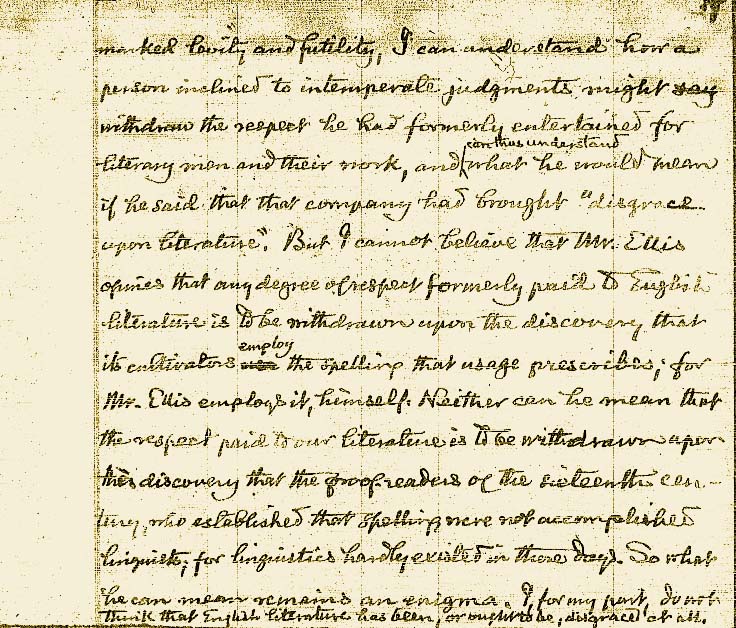 marked levity and futility, I can understand how a
person inclined to intemperate judgments might say
withdraw the respect he had formerly entertained for
can thus understand
literary men and their work, and what he would mean
if he said that that company had brought "disgrace
upon literature". But I cannot believe that Mr. Ellis
opines that any degree of respect formerly paid to English
literature is to be withdrawn upon the discovery that
employ
its cultivators the spelling that usage prescribes; for
Mr. Ellis employs it, himself. Neither can he mean that
the respect paid to our literature is to be withdrawn upon
this discovery that the proof-readers of the sixteenth cen-
tury, who established that spelling were not accomplished
linguists; for linguistics hardly existed in those days. So what
he can mean remains an enigma. I, for my part, do not
think that English literature has been, or ought to be, disgraced at all.